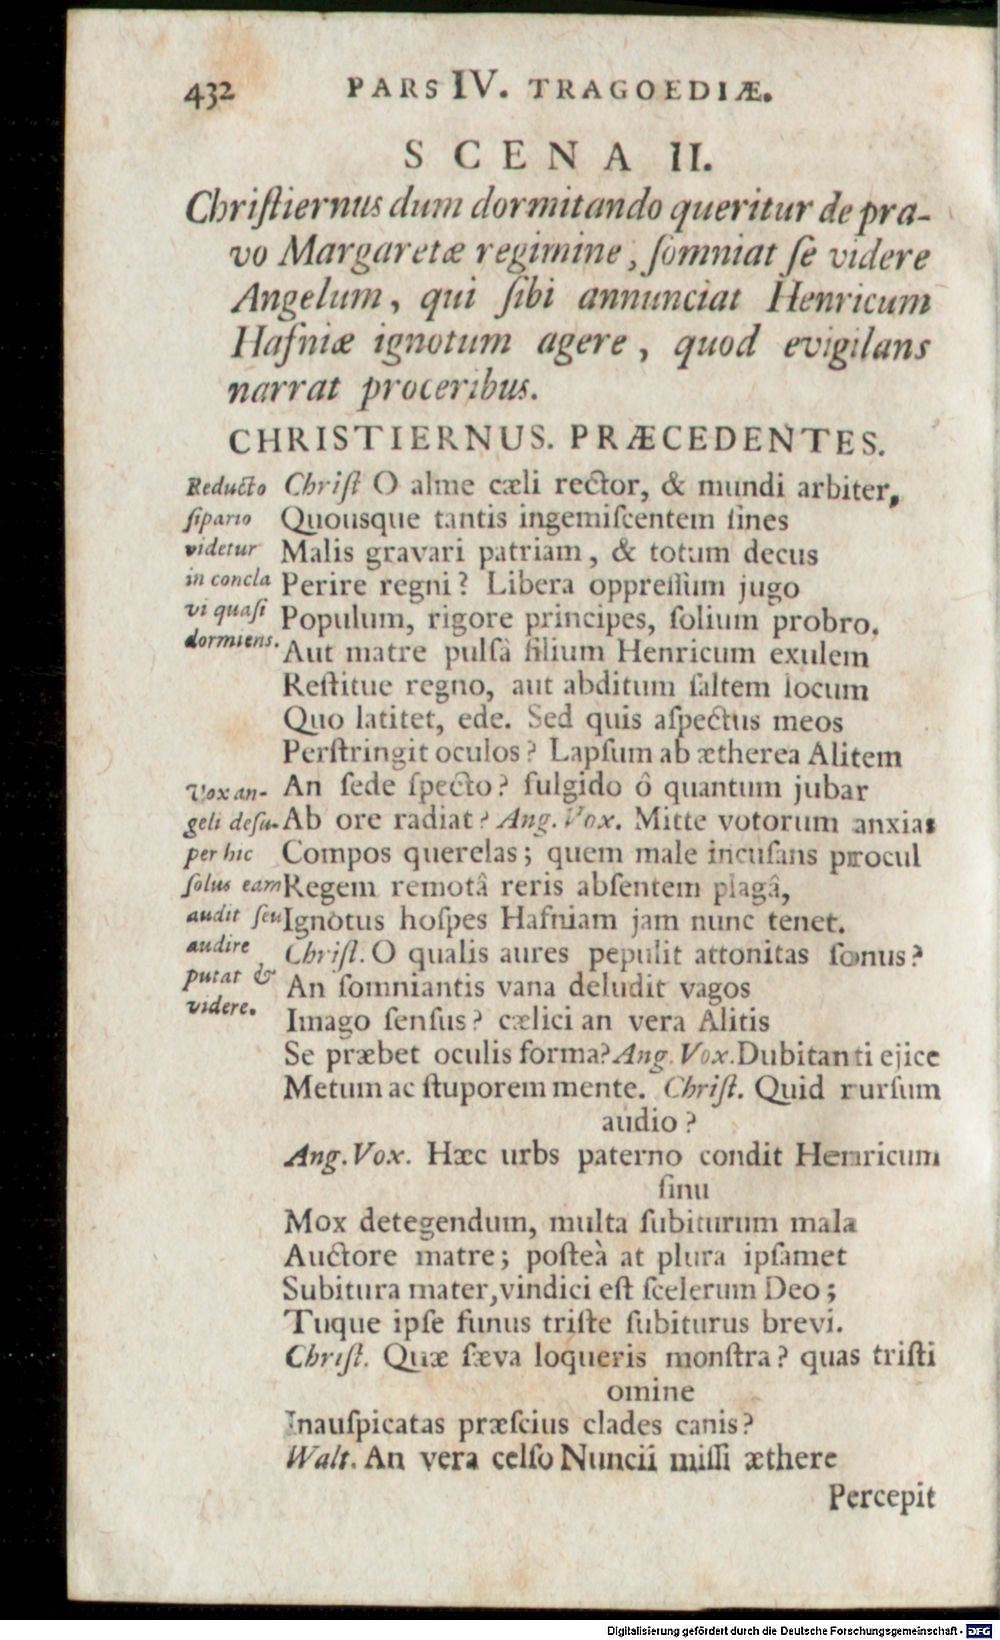 432 PARS IV. TRAGOEDIÆ.
SCENA II.
Chriſtiernus dum dormitando queritur de pra-
vo Margaretæ regimine, ſomniat ſe videre
Angelum, qui ſibi annunciat Henricum
Hafniæ ignotum agere, quod evigilans
narrat proceribus.
CHRISTIERNUS. PRÆCEDENTES.
Reducto
ſipario
videtur
in concla
vi quaſi
dormiens.
Chriſt O alme cæli rector, & mundi arbiter,
Quousque tantis ingemiſcentem ſines
Malis gravari patriam, & totum decus
Perire regni? Libera oppreſſum jugo
Populum, rigore principes, ſolium probro.
Aut matre pulſâ filium Henricum exulem
Reſtitue regno, aut abditum ſaltem locum
Quo latitet, ede. Sed quis aſpectus meos
Perſtringit oculos? Lapſum ab ætherea Alitem
Vox an-
geli deſu-
per hic
ſolus eam
audit ſeu
audire
putat &
videre.
An ſede ſpecto? fulgido ô quantum jubar
Ab ore radiat? Ang. Vox. Mitte votorum anxias
Compos querelas; quem male incuſans procul
Regem remotâ reris abſentem plagâ,
Ignotus hoſpes Hafniam jam nunc tenet.
Chriſt. O qualis aures pepulit attonitas ſonus?
An ſomniantis vana deludit vagos
Imago ſenſus? cælici an vera Alitis
Se præbet oculis forma? Ang. Vox. Dubitanti ejice
Metum ac ſtuporem mente. Chriſt. Quid rurſum
audio?
Ang. Vox. Hæc urbs paterno condit Henricum
ſinu
Mox detegendum, multa ſubiturum mala
Auctore matre; poſteà at plura ipſamet
Subitura mater, vindici eſt ſcelerum Deo;
Tuque ipſe funus triſte ſubiturus brevi.
Chriſt. Quæ ſæva loqueris monſtra? quas triſti
omine
Inauſpicatas præſcius clades canis?
Walt. An vera celſo Nuncii miſſi æthere
Percepit
Digitalisierung gefördert durch die Deutsche Forschungsgemeinschaft - DFG